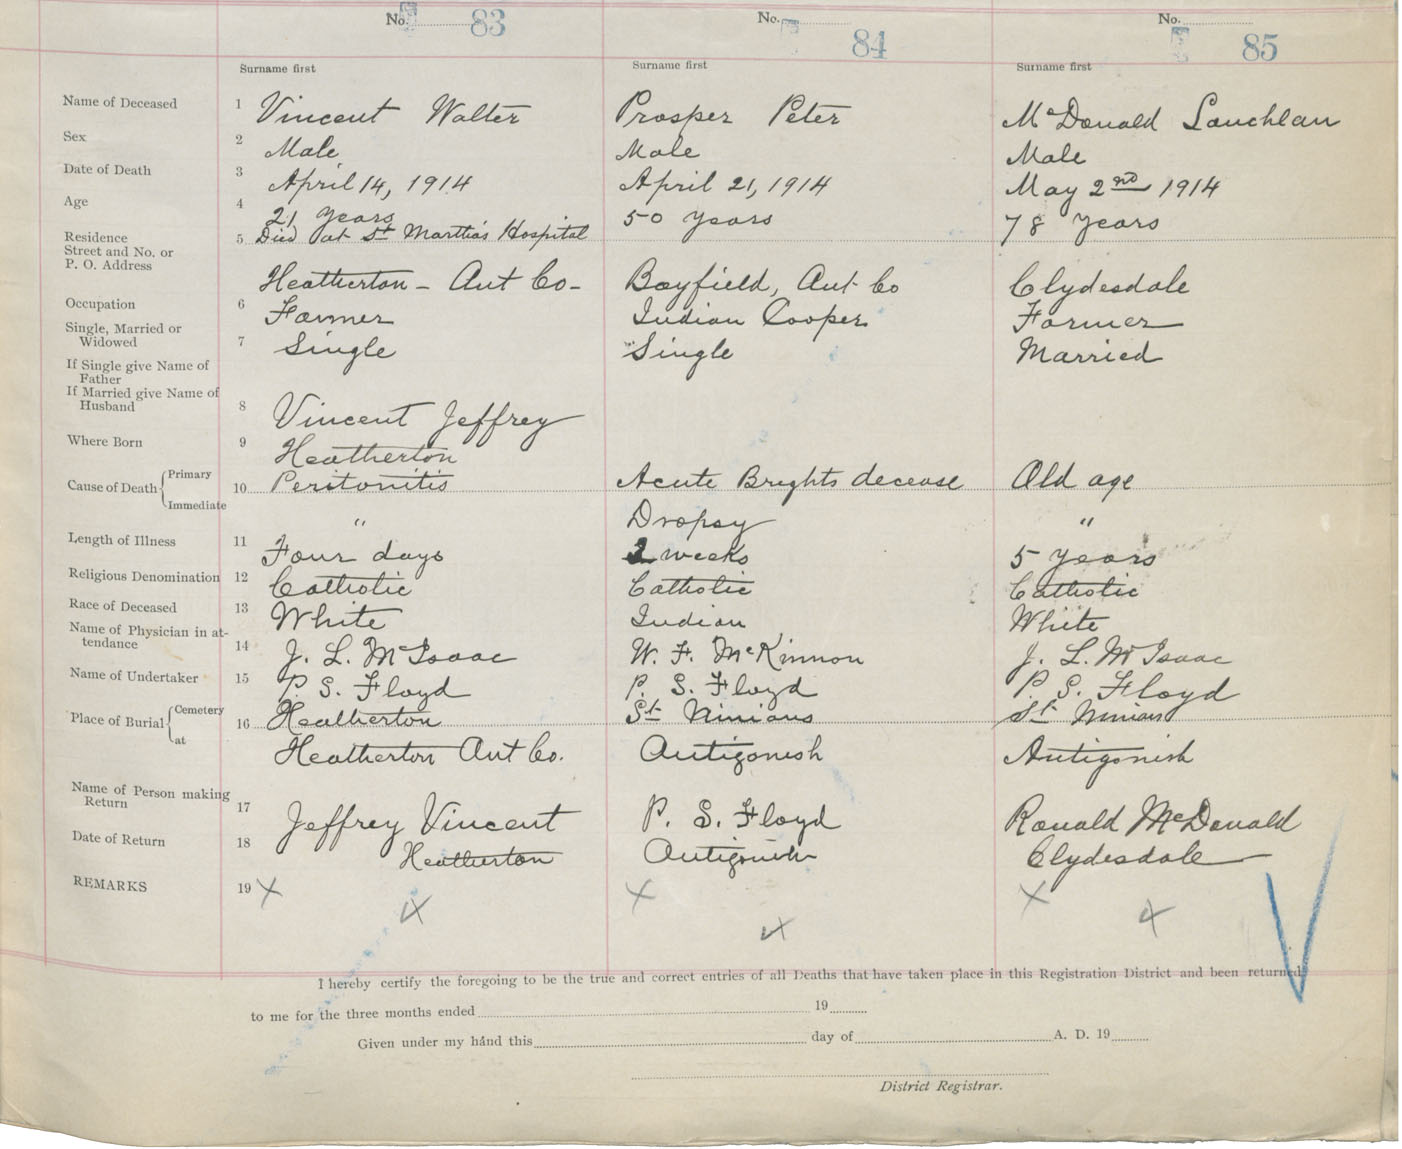 No. 83 No. 84 No. 85
Surname first Surname first Surname first
Name of Deceased 1 Vincent Walter Prosper Peter McDonald Lauchlan
Sex 2 Male Male Male
Date of Death 3 April 14, 1914 April 21, 1914 May 2nd 1914
Age 4 21 years 50 years 78 years
Residence 5 Died at St Martha's Hospital
Street and No. or
P. O. Address Heatherton - Ant Co- Bayfield, Ant Co Clydesdale
Occupation 6 Farmer Indian Cooper Farmer
Single, Married or
Widowed 7 Single Single Married
If Single give Name of
Father
If Married give Name of
Husband 8 Vincent Jeffrey
Where Born 9 Heatherton
Cause of Death Primary 10 Peritonitis Acute Brights decease Old age
Immediate " Dropsy "
Length of Illness 11 Four days 2 weeks 5 years
Religious Denomination 12 Catholic Catholic Catholic
Race of Deceased 13 White Indian White
Name of Physician in at-
tendance 14 J. L. McIsaac W. F. McKinnon J. L. McIsaac
Name of Undertaker 15 P. S. Floyd P. S. Floyd P. S. Floyd
Place of Burial Cemetery 16 Heatherton St Ninians St Ninians
at Heatherton Ant Co. Antigonish Antigonish
Name of Person making
Return 17 Jeffrey Vincent P. S. Floyd Ronald McDonald
Date of Return 18 Heatherton Antigonish Clydesdale
REMARKS 19 X X X
I hereby certify the foregoing to be the true and correct entries of all Deaths that have taken place in this Registration District and been returned
to me for the three months ended 19
Given under my hand this day of A. D. 19
District Registrar.